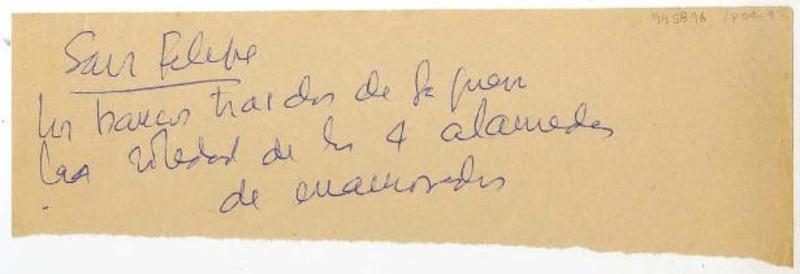 945896
San Felipe
los bancos traídos de la guerra
La soledad de las 4 alamedas
de enamorados